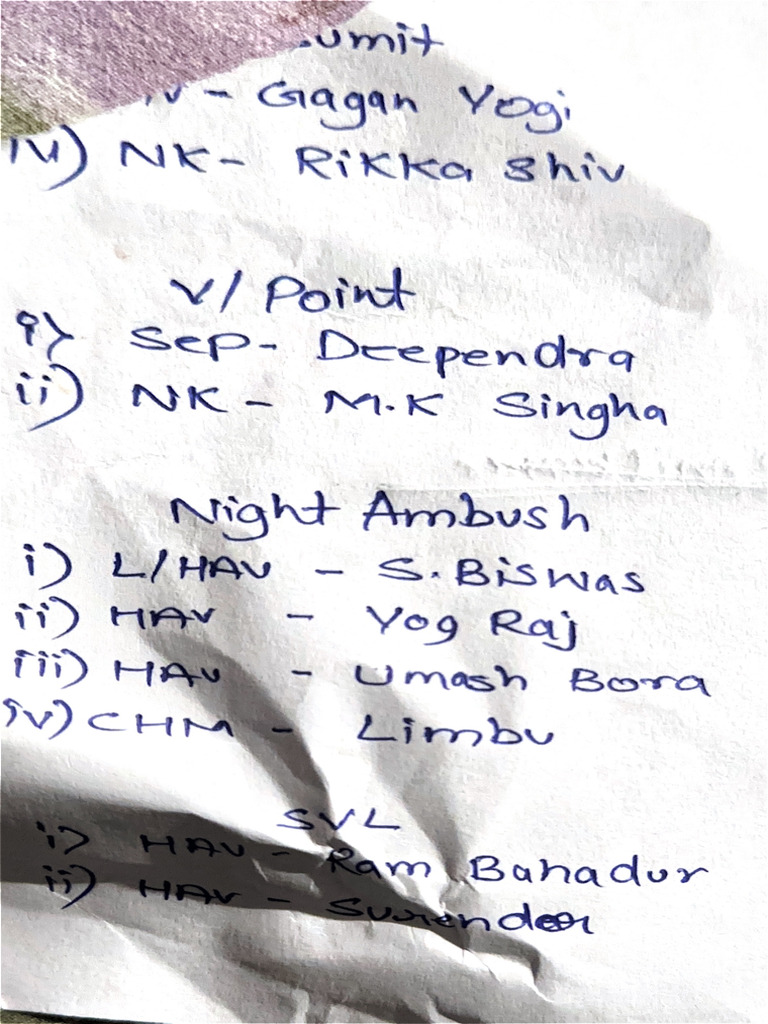 Gagan Yogi
iv) NK- Rikka Shiv
V/ Point
i) Sep- Deependra
ii) NK - M.K Singha
Night Ambush
i) L/HAV - S. Biswas
ii) HAV - Yog Raj
iii) HAV - Umash Bora
iv) CHM - Limbu
SVL
i) HAV - Ram Bahadur
ii) HAV - Surender